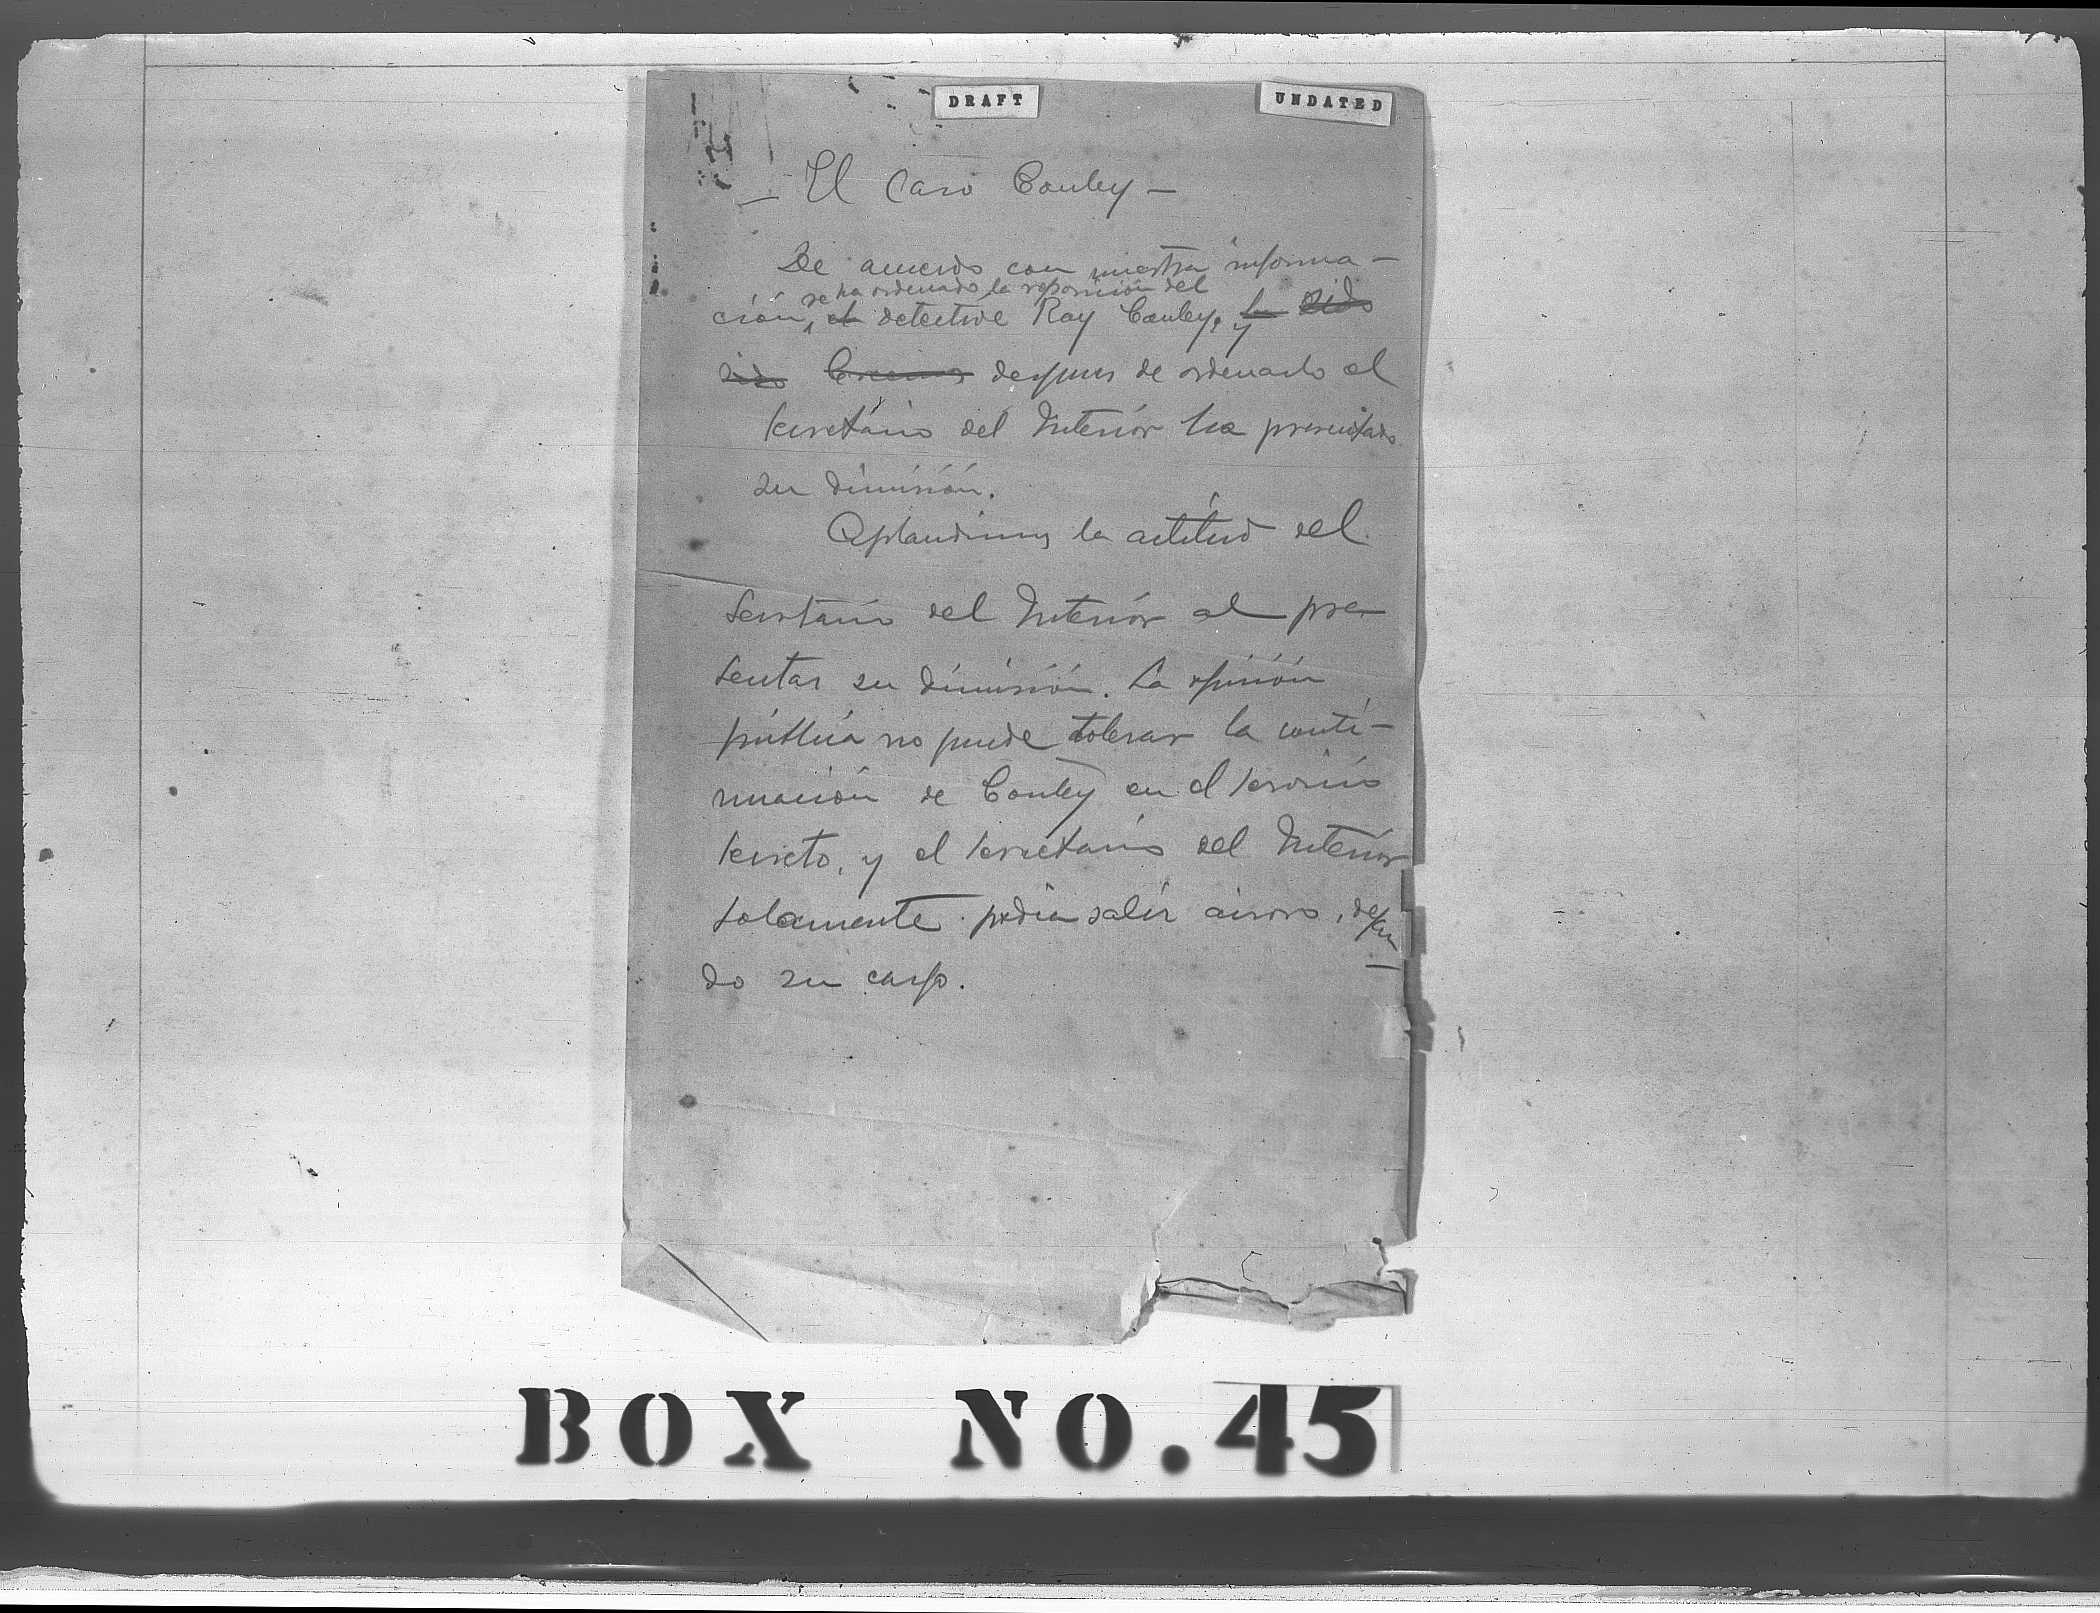 DRAFT UNDATED
— El Caso Conley —
De acuerdo con nuestra informa-
se ha ordenado la reposicion del
ción, el detective Ray Conley, y ha sido
sido despues de ordenarlo el
Secretario del Interior ha presentado
su dimisión.
Aplaudimos la actitud del
Secretario del Interior al pre-
sentar su dimisión. La opinión
pública no puede tolerar la conti-
nuación de Conley en el servicio
secreto, y el secretario del Interior
solamente podia salir airoso, dejan-
do su cargo.
BOX NO. 45